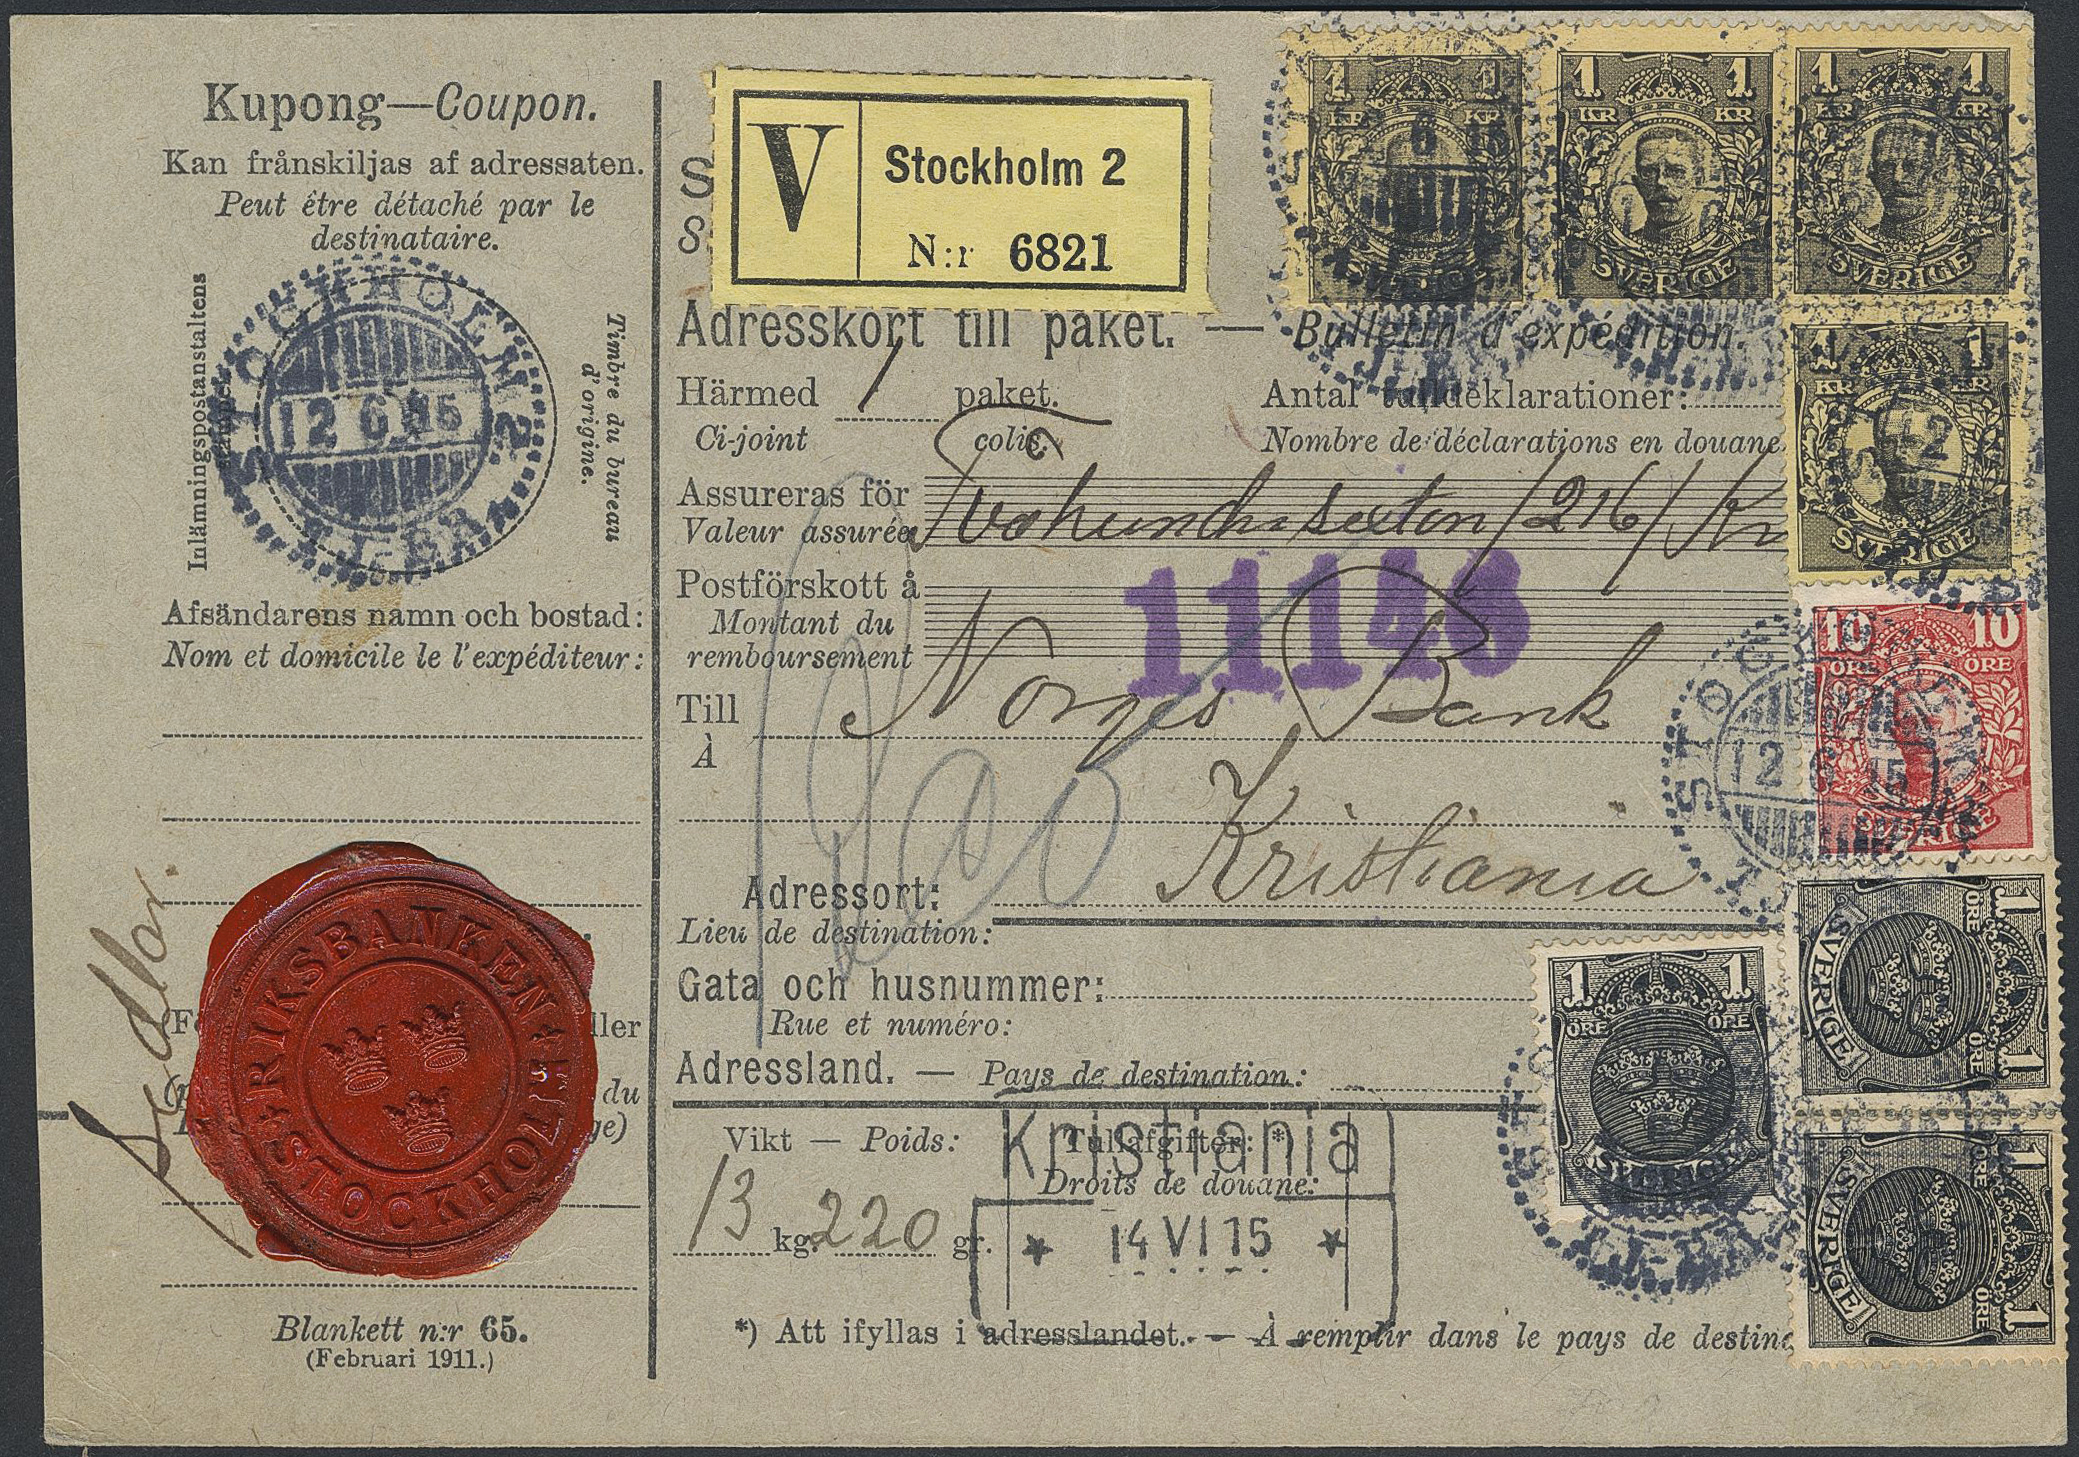 Kupong—Coupon.
Kan frånskiljas af adressaten.
Peut être détaché par le
destinataire.
Inlämningspostanstaltens
stämpel.
Timbre du bureau
d'origine.
STOCKHOLM 2
12 6 15
Afsändarens namn och bostad:
Nom et domicile le l'expéditeur:
Sedlar.
ller
du
ge)
RIKSBANKEN I STOCKHOLM
Blankett n:r 65.
(Februari 1911.)
V
Stockholm 2
N:r 6821
S
S
Adresskort till paket. — Bulletin d'expédition.
Härmed 1 paket.
Ci-joint colis.
Antal tulldeklarationer:
Nombre de déclarations en douane
Assureras för
Valeur assurée
Tvåhundrasexton /216/ Kr
Postförskott å
Montant du
remboursement
11146
Till Norges Bank
À
Adressort: Kristiania
Lieu de destination:
Gata och husnummer:
Rue et numéro:
Adressland. — Pays de destination:
Vikt — Poids:
13 kg. 220 gr.
Tullafgifter: *
Droits de douane:
Kristiania
* 14 VI 15 *
*) Att ifyllas i adresslandet. — À remplir dans le pays de destina
1 KR 1 KR
SVERIGE
1 KR 1 KR
SVERIGE
1 KR 1 KR
SVERIGE
1 KR 1 KR
SVERIGE
10 ÖRE 10 ÖRE
SVERIGE
STOCKHOLM
12 6 15
1 ÖRE 1 ÖRE
SVERIGE
1 ÖRE 1 ÖRE
SVERIGE
1 ÖRE 1 ÖRE
SVERIGE